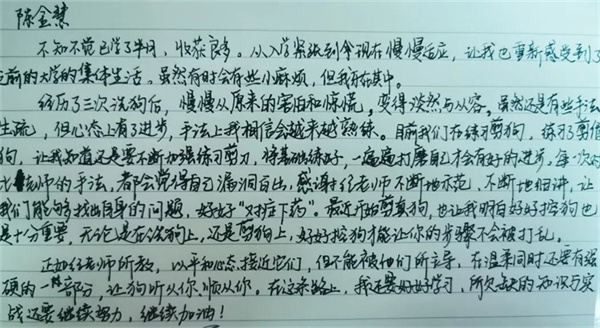 陈金慧
不知不觉已学了半月,收获良多。从入学紧张到今现在慢慢适应,让我也重新感受到了
前的大学的集体生活。虽然有时会有些小麻烦,但我乐在其中。
经历了三次洗狗后,慢慢从原来的害怕和惊慌,变得淡然与从容。虽然还是有些手法
生疏,但心态上有了进步,手法上我相信会越来越熟练。目前我们在练习剪狗,练习剪假
狗,让我知道还是要不断加强练习剪刀,将基础练好,一遍遍打磨自己才会有好的进步。每次对
比老师的手法,都会觉得自己漏洞百出,感谢任老师不断地示范,不断地细讲,让
我们能够找出自身的问题,好好"对症下药"。最近开始剪真狗,也让我明白好好控狗也
是十分重要,无论是在洗狗上,还是剪狗上,好好控狗才能让你的步骤不会被打乱。
正如任老师所教,以平和心态接近它们,但不能被他们所主导,在温柔同时还要有强
硬的一部分,让狗听从你、顺从你。在这条路上,我还要好好学习,所欠缺的知识与实
战还要继续努力,继续加油!